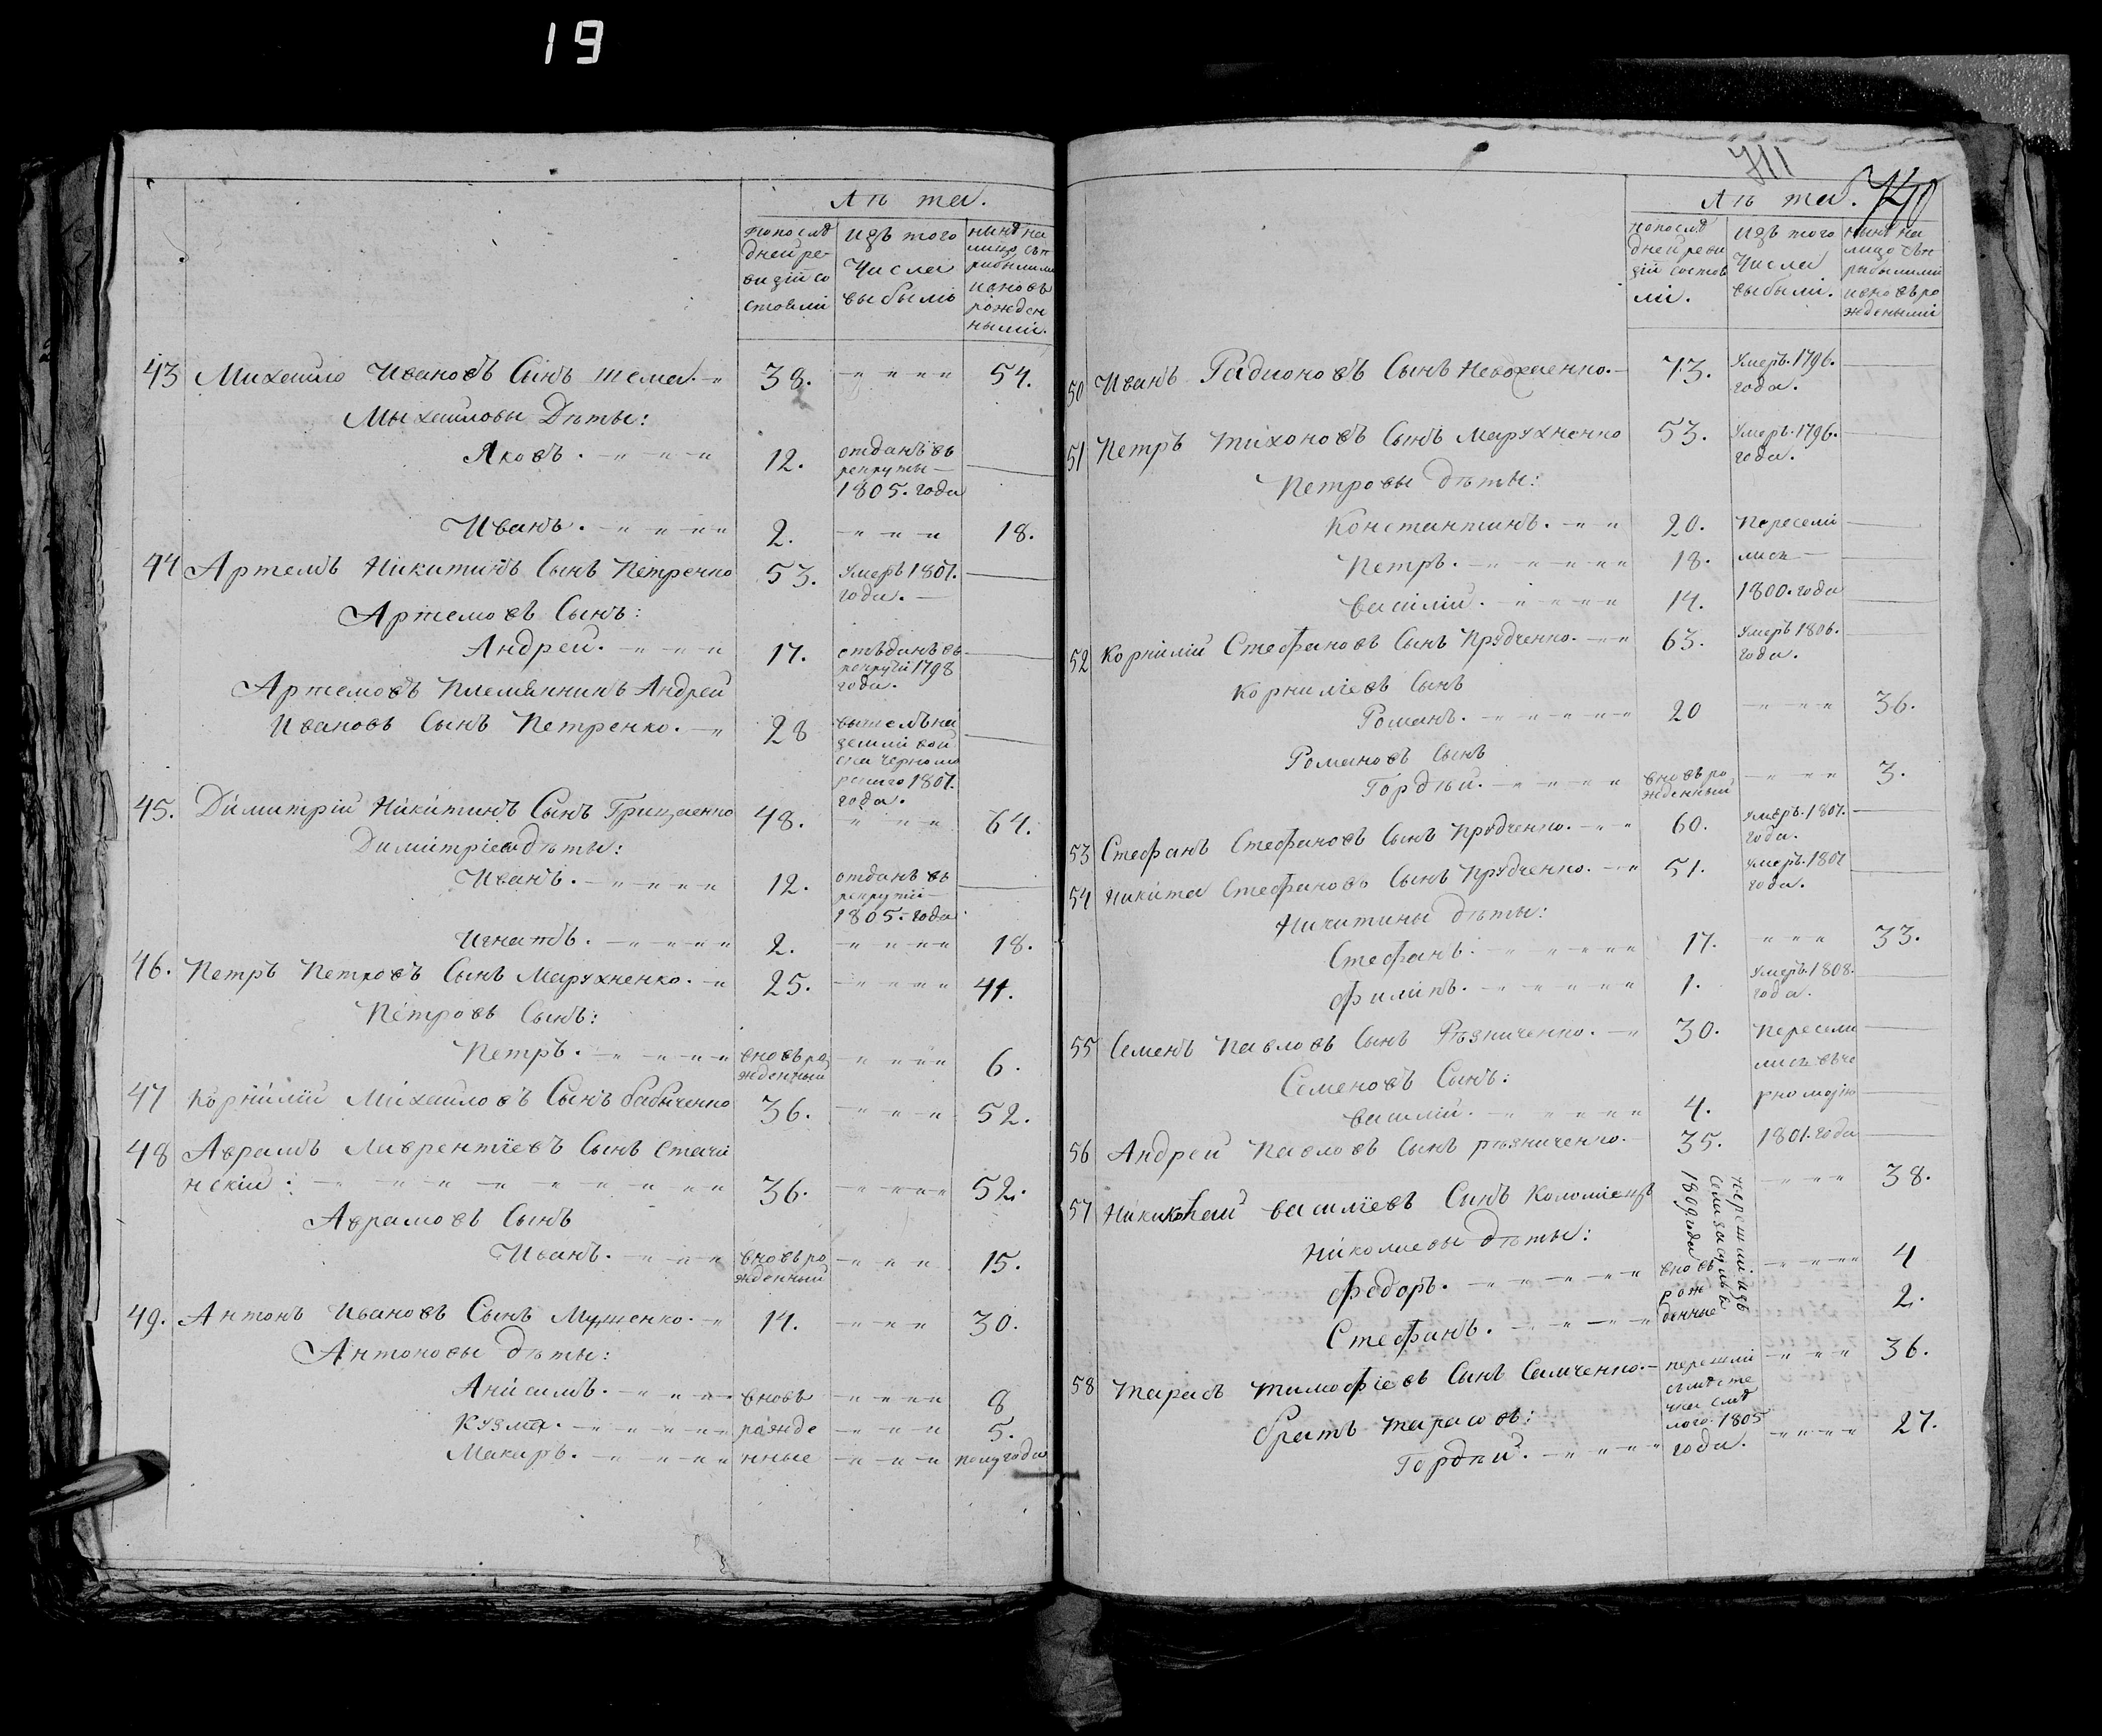 19
Лѣта.
попослѣ
дней ре-
визіи со
стояли
изъ того
числа
выбыло
нынѣ на
лицо съп
рибылыми
и вновь
рожден
ными.
43 Михайло Ивановъ Сынъ шема. 38. 54.
Михайловы Дѣты:
Яковъ. 12. отданъ въ
рекруты
1805. года
Иванъ. 2. 18.
44 Артемъ Никитинъ Сынъ Петренко 53. Умеръ 1807.
года.
Артемовъ Сынъ:
Андрей. 17. отъданъ въ
рекрути 1798
года.
Артемовъ Племѣнникъ Андрей
Ивановъ Сынъ Петренко. 28 вышелъ на
земли вой
ска черномо
рскаго 1807.
года.
45. Димитрій Никитинъ Сынъ Грицаенко 48. 64.
Димитріевы дѣты:
Иванъ. 12. отданъ въ
рекрути
1805. года
Игнатъ. 2. 18.
46. Петръ Петровъ Сынъ Марухненко. 25. 41.
Петровъ Сынъ:
Петръ. вновьро
жденный 6.
47 Корнилій Михайловъ Сынъ бабиченко 36. 52.
48 Аврамъ Лаврентіевъ Сынъ Стачи
нскій: 36. 52.
Аврамовъ Сынъ
Иванъ. вновьро
жденный 15.
49. Антонъ Ивановъ Сынъ 14. 30.
Антоновы дѣты:
Анисимъ. вновь 8
Кузма. рожде 5.
Макаръ. нные полугода
711
740
Лѣта.
попослѣ
дней реви
зіи состоя
ли.
изъ того
числа
выбыли.
нынѣ на
лицо съп
рибылими
и вновьро
ждеными
50 Иванъ Радионовъ Сынъ 73. Умеръ. 1796.
года.
51 Петръ Тихоновъ Сынъ Марухненко 53. Умеръ. 1796.
года.
Петровы дѣты:
Константинъ. 20. Пересели
Петръ. 18. лись
василій. 14. 1800. года
52 Корнилій Стефановъ Сынъ Прудченко. 63. Умеръ 1806.
года.
Корниліевъ Сынъ
Романъ. 20 36.
Романовъ Сынъ
Гордѣй. вновьро
жденный 3.
53 Стефанъ Стефановъ Сынъ Прудченко. 60. Умеръ. 1807.
года.
54 Никита Стефановъ Сынъ Прудченко. 51. Умеръ. 1807
года.
Никитины дѣты:
Стефанъ. 17. 33.
Филипъ. 1. Умеръ. 1808.
года.
55 Семенъ Павловъ Сынъ Рѣзниченко. 30. Пересели
лись въче
Семеновъ Сынъ:
василій. 4. рноморію
56 Андрей Павловъ Сынъ рѣзниченко. 35. 1801. года
57 Николай василіевъ Сынъ Коломіецъ 38.
перешли изъ
1809. года
Николаевы дѣты:
Фѣдоръ. вновь 4
рож
Стефанъ. денние 2.
58 Тарасъ тимофіевъ Сынъ Самченко. перешли 36.
Братъ тарасовъ: лого. 1805
Гордѣй. года. 27.